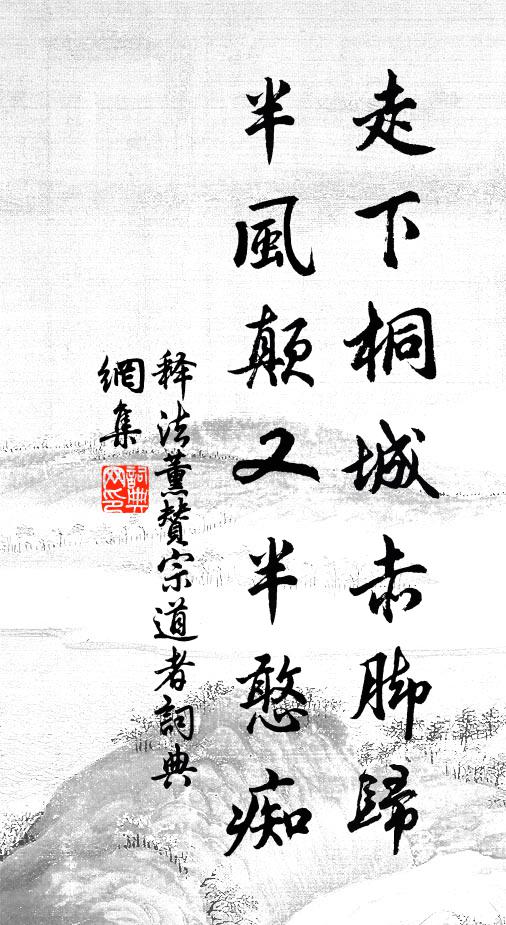 走下桐城赤脚歸
半風顛又半憨痴
释法薰赞宗道者詞典
網集
詞典网印